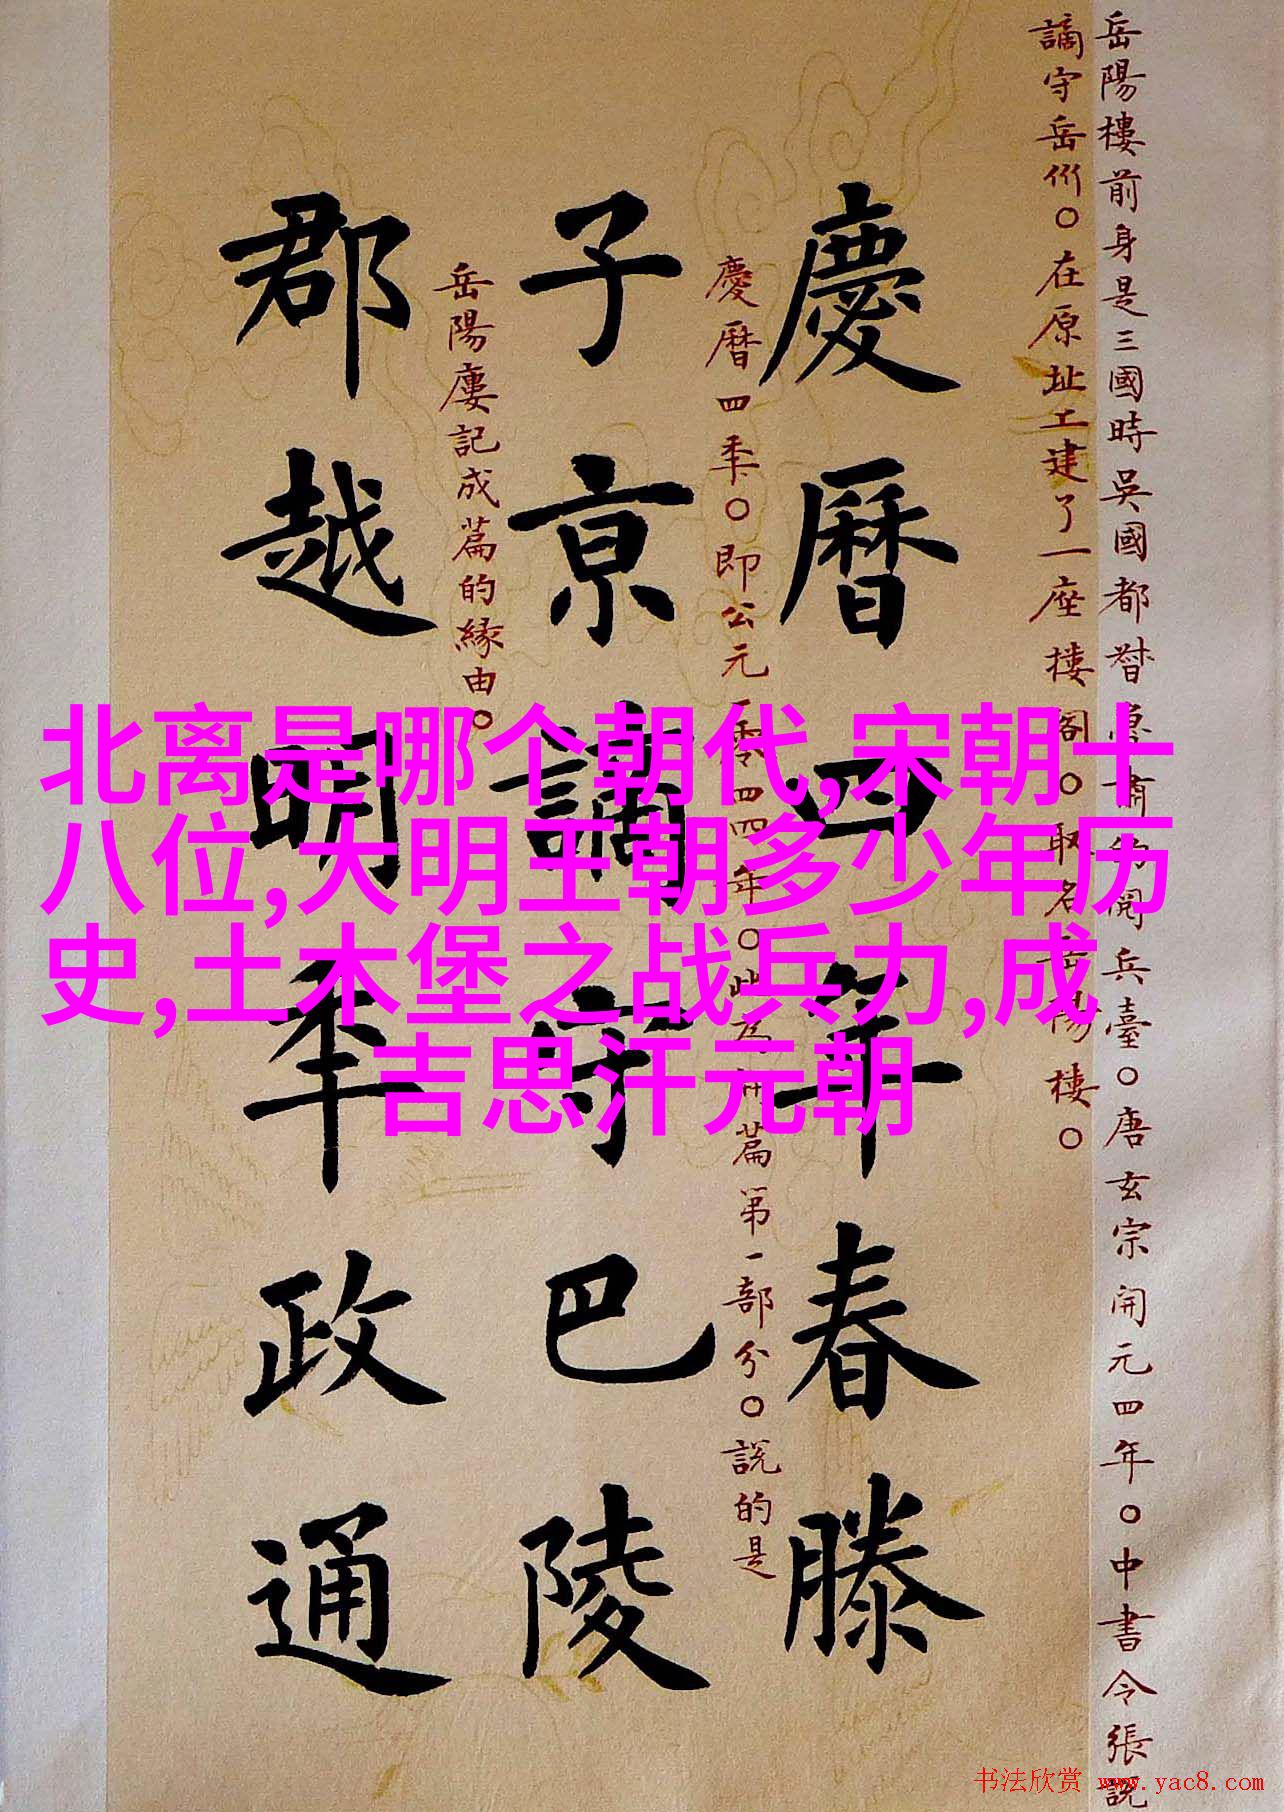 岳陽樓前身是三國時吳國都督魯肅的閲兵臺○唐玄宗開元四年○中書令張說
謫守岳州○在原址工建了一座樓閣○取名岳陽樓○
慶曆四年春滕
慶曆四年○即公元一零四四年○此為開篇第一部分○説的是
子京謫守巴陵
岳陽廔記成篇的緣由○
郡越明年政通
北离是哪个朝代,宋朝十
八位,大明王朝多少年历
史,土木堡之战兵力,成
吉思汗元朝
书法欣赏 www.yac8.com